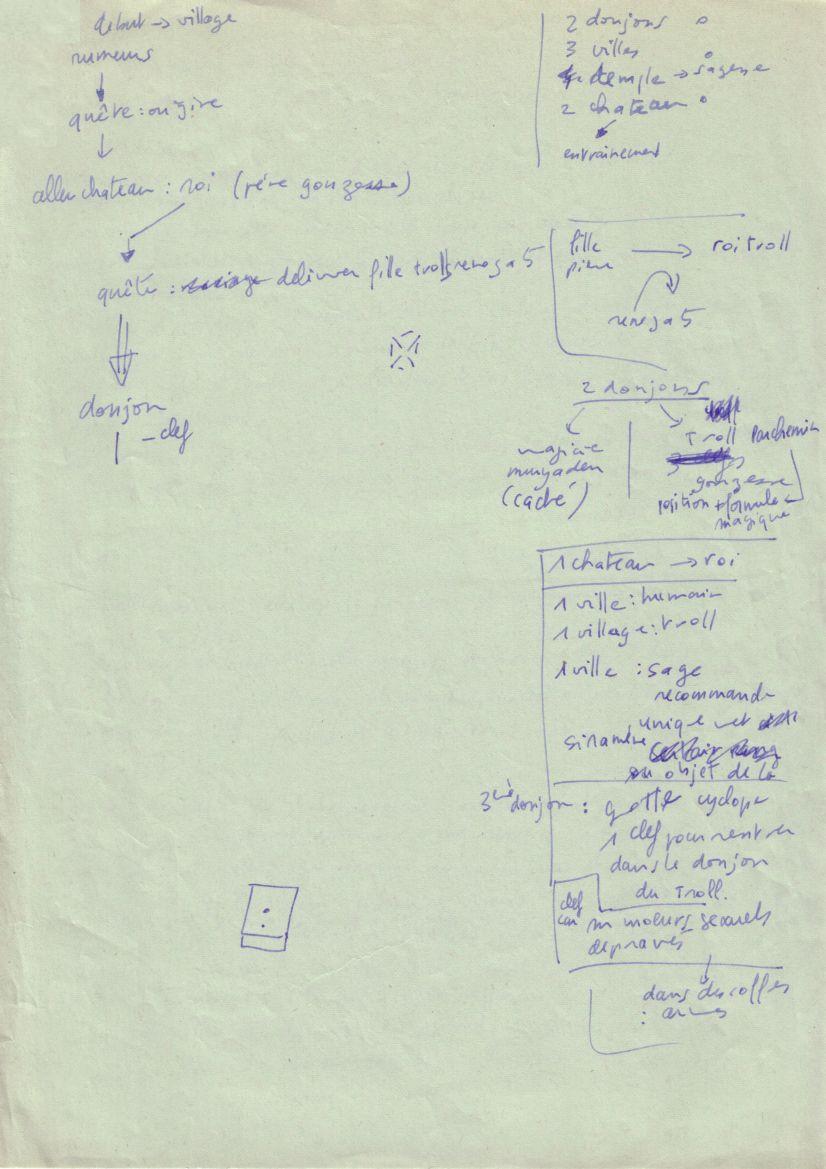 début → village
rumeurs
quête : origine
aller chateau : roi (père gonzesse)
quête : délivrer fille troll renega 5
donjon
- clef
2 donjons
3 villes
temple → sagesse
2 chateau
entrainement
fille → roi troll
renega 5
2 donjons
(caché)
Troll Parchemin
gonzesse
position + formule
magique
1 chateau → roi
1 ville : humain
1 village : troll
1 ville : sage
recommande
unique
objet de la
3 donjon : grotte cyclope
1 clef pour rentrer
dans le donjon
du Troll.
clef
moeurs sexuels
dépravés
dans des coffres
: armes